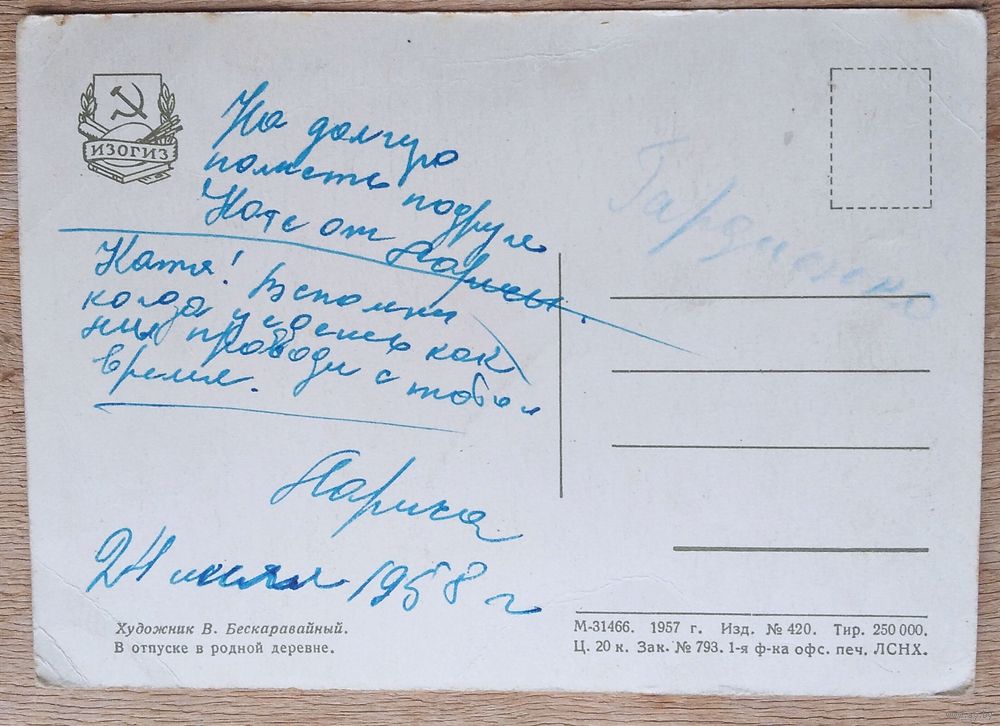 ИЗОГИЗ
На долгую
память подруге
Кате от Ларисы.
Катя! Вспомни
когда уедешь как
мы проводи с тобой
время.
Лариса
24 июля 1958 г
Художник В. Бескаравайный.
В отпуске в родной деревне.
М-31466. 1957 г. Изд. № 420. Тир. 250 000.
Ц. 20 к. Зак. № 793. 1-я ф-ка офс. печ. ЛСНХ.